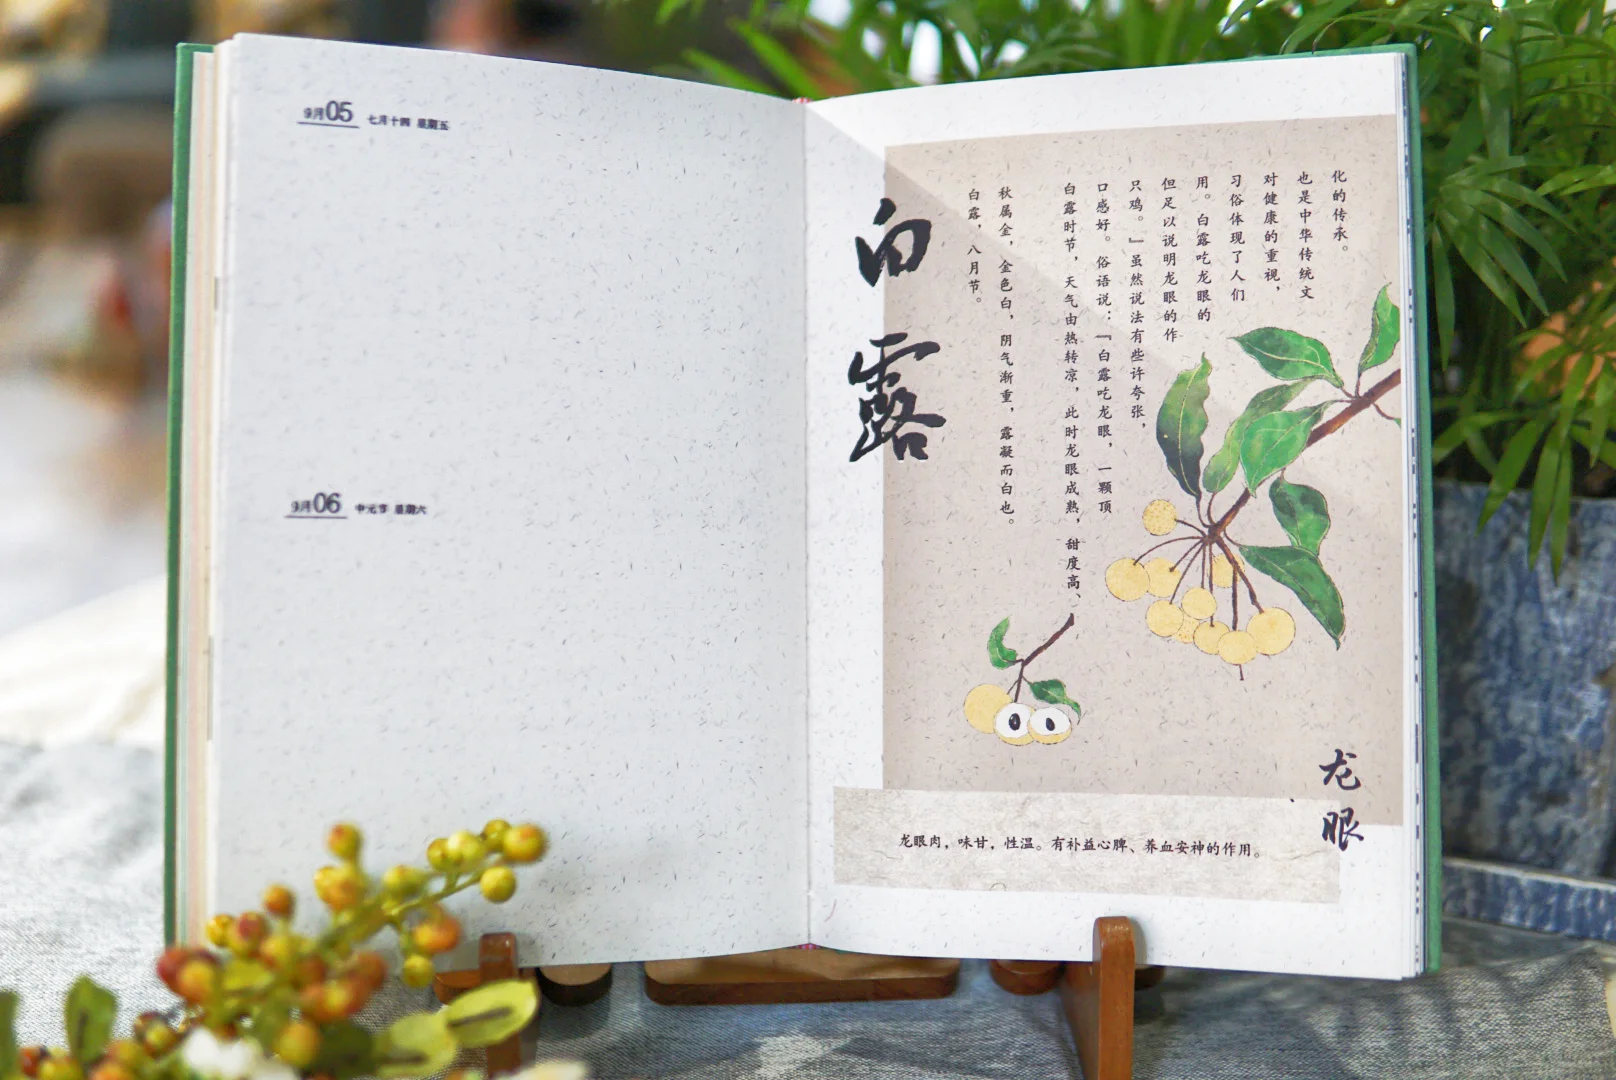 9月05 七月十四 星期五
9月06 中元节 星期六
白露
白露，八月节。
秋属金，金色白，阴气渐重，露凝而白也。
白露时节，天气由热转凉，此时龙眼成熟，甜度高、
口感好。俗语说：『白露吃龙眼，一颗顶
只鸡。』虽然说法有些许夸张，
但足以说明龙眼的作
用。白露吃龙眼的
习俗体现了人们
对健康的重视，
也是中华传统文
化的传承。
龙眼
龙眼肉，味甘，性温。有补益心脾、养血安神的作用。